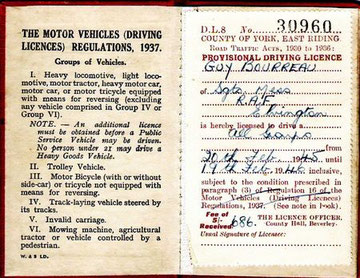 THE MOTOR VEHICLES (DRIVING
LICENCES) REGULATIONS, 1937.
Groups of Vehicles.
I. Heavy locomotive, light loco-
motive, motor tractor, heavy motor car,
motor car, or motor tricycle equipped
with means for reversing (excluding
any vehicle comprised in Group IV or
Group VI).
NOTE. — An additional licence
must be obtained before a Public
Service Vehicle may be driven.
No person under 21 may drive a
Heavy Goods Vehicle.
II. Trolley Vehicle.
III. Motor Bicycle (with or without
side-car) or tricycle not equipped with
means for reversing.
IV. Track-laying vehicle steered by
its tracks.
V. Invalid carriage.
VI. Mowing machine, agricultural
tractor or vehicle controlled by a
pedestrian.
W. & S LD.
D.L.8 No 30960
COUNTY OF YORK, EAST RIDING
ROAD TRAFFIC ACTS, 1930 to 1936:
PROVISIONAL DRIVING LICENCE
GUY BOURREAU
of Sgts Mess
R.A.F.
Elvington
is hereby licensed to drive a
All Groups
from 20th Feb 1945
until 19th Feb 1946 inclusive,
subject to the condition prescribed in
paragraph (3) of Regulation 16 of the
Motor Vehicles (Driving Licences)
Regulations, 1937. (See note in book).
Fee of
5/-
Received 686. THE LICENCE OFFICER.
County Hall, Beverley.
Usual Signature of Licensee: